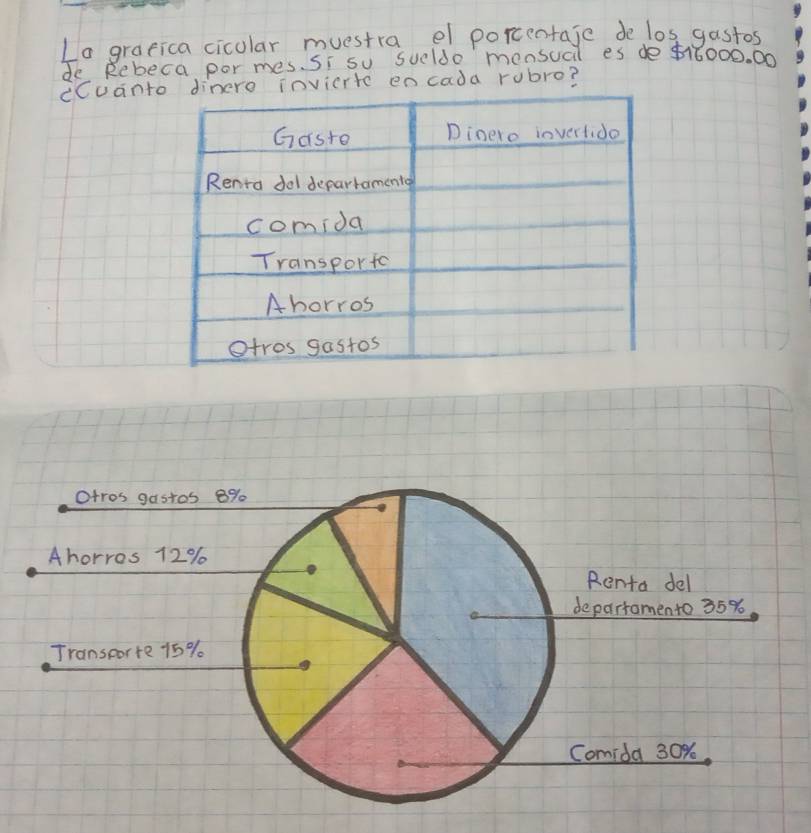 La grafica cicular muestra el porcentaje de los gastos
de Rebeca por mes. Si su sueldo mensual es de $16000.00
¿Cuánto dinero invierte en cada rubro?
Gasto Dinero invertido
Renta del departamento
Comida
Transporte
Ahorros
Otros gastos
Otros gastos 8%
Ahorros 12%
Renta del
departamento 35%
Transporte 15%
Comida 30%